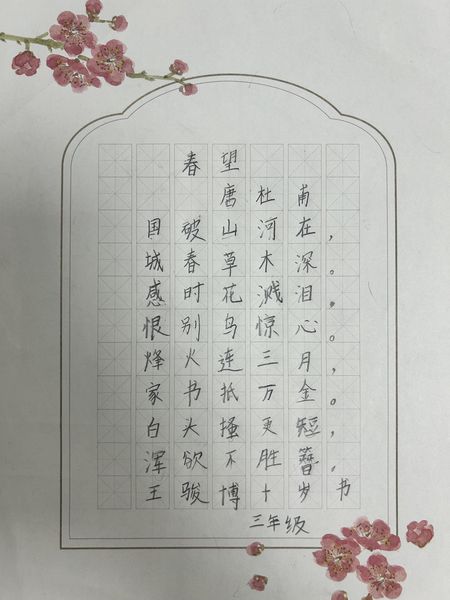 春望
唐 杜甫
国破山河在，
城春草木深。
感时花溅泪，
恨别鸟惊心。
烽火连三月，
家书抵万金。
白头搔更短，
浑欲不胜簪。
王骏博十岁书
三年级